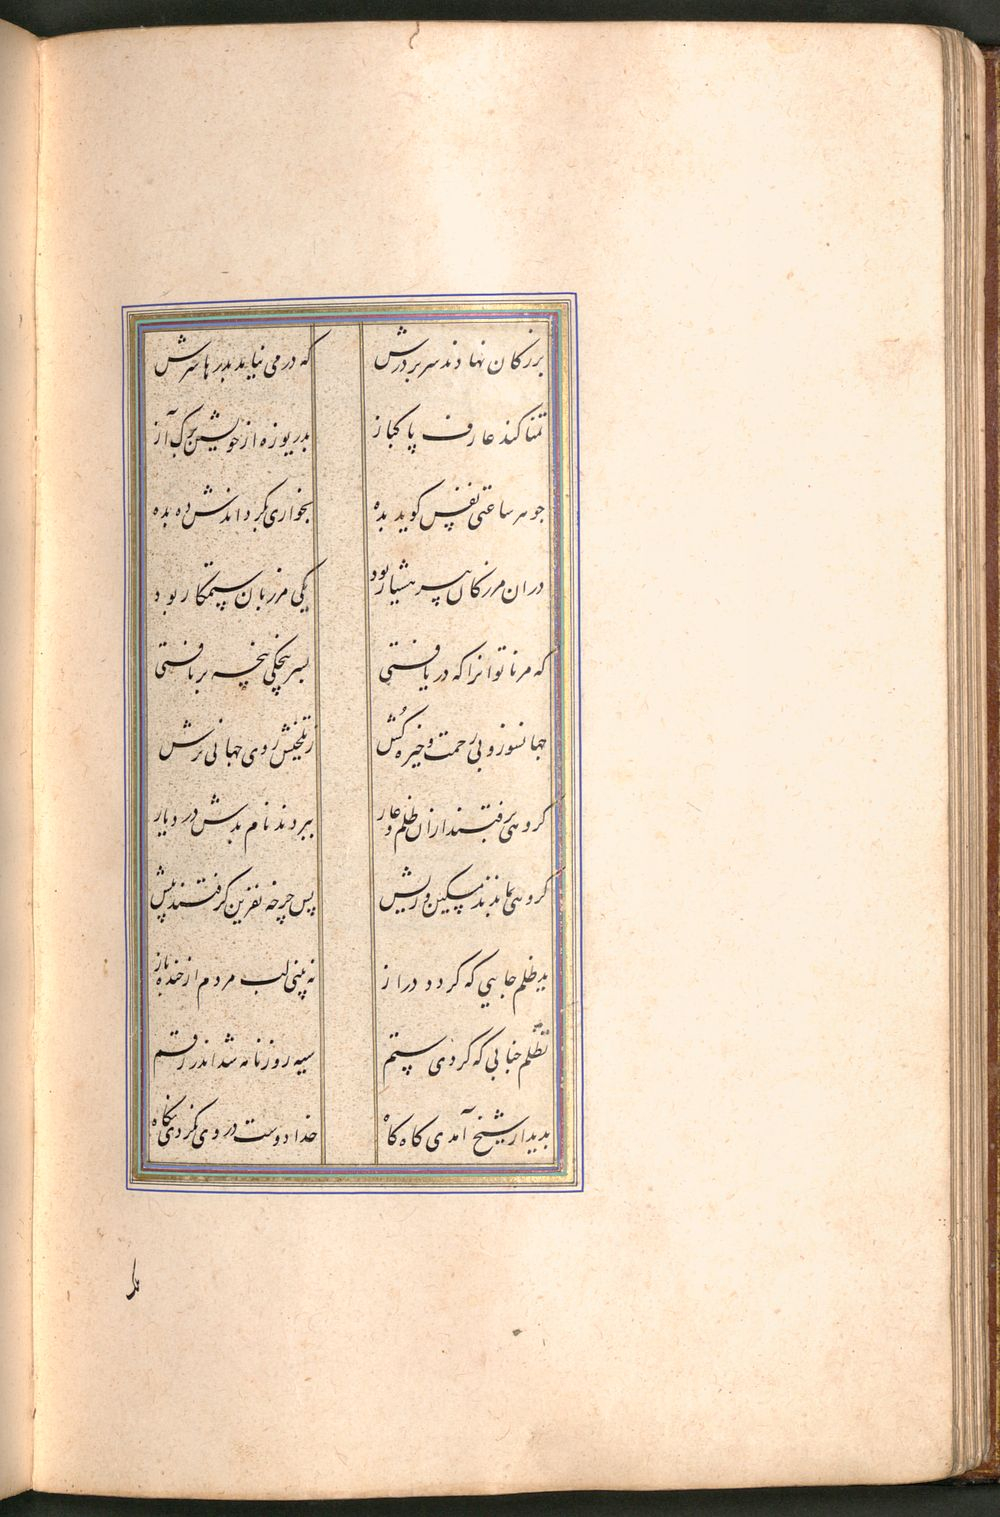 بزرکان نهادند سر بر درش که در می نیامد بدرها سرش
تمنا کند عارف پاکباز بدریوزه از خویشتن ترک آز
چو هر ساعتی نفس کوید بده بخواری بکرداندش ده بده
دران مرز کان پیر هشیار بود یکی مرزبان ستمکار بود
که هر ناتوانرا که دریافتی بسرپنچکی پنچه برتافتی
جهانسوز و بی رحمت و خیره کُش ز تلخیش روی جهانی ترش
کروهی برفتند ازان ظلم و عار ببردند نام بدش در دیار
کروهی بماندند مسکین و ریش پس چرخه نفرین کرفتند پیش
ید ظلم جایی که کردد دراز نه بینی لب مردم از خنده باز
تظلم کردی ستم سیه روزنامه شد اندر رقم
بدیدار شیخ آمدی کاه کاه خدادوست در وی نکردی نکاه